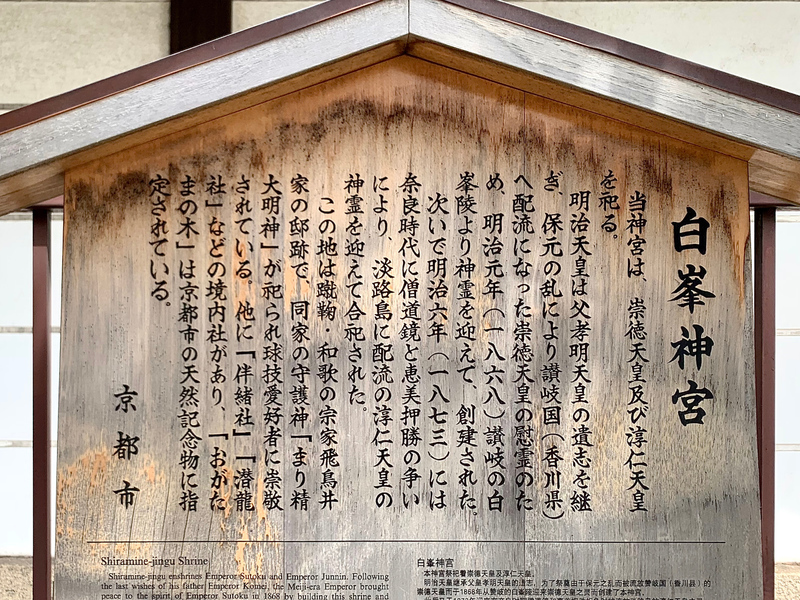 白峯神宮
当神宮は、崇徳天皇及び淳仁天皇
を祀る。
明治天皇は父孝明天皇の遺志を継
ぎ、保元の乱により讃岐国(香川県)
へ配流になった崇徳天皇の慰霊のた
め、明治元年(一八六八)讃岐の白
峯陵より神霊を迎えて、創建された。
次いで明治六年(一八七三)には
奈良時代に僧道鏡と恵美押勝の争い
により、淡路島に配流の淳仁天皇の
神霊を迎えて合祀された。
この地は蹴鞠・和歌の宗家飛鳥井
家の邸跡で、同家の守護神「まり精
大明神」が祀られ球技愛好者に崇敬
されている。他に「伴緒社」「潜龍
社」などの境内社があり、「おがた
まの木」は京都市の天然記念物に指
定されている。
京都市
Shiramine-jingu Shrine
Shiramine-jingu enshrines Emperor Sutoku and Emperor Junnin. Following
the last wishes of his father Emperor Komei, the Meiji-era Emperor brought
peace to the spirit of Emperor Sutoku in 1868 by building this shrine and
白峯神宫
本神宫祭祀着崇德天皇及淳仁天皇。
明治天皇继承父皇孝明天皇的遗志，为了祭奠由于保元之乱而被流放赞岐国（香川县）的
崇德天皇而于1868年从赞岐的白峰陵迎来崇德天皇之灵而创建了本神宫。